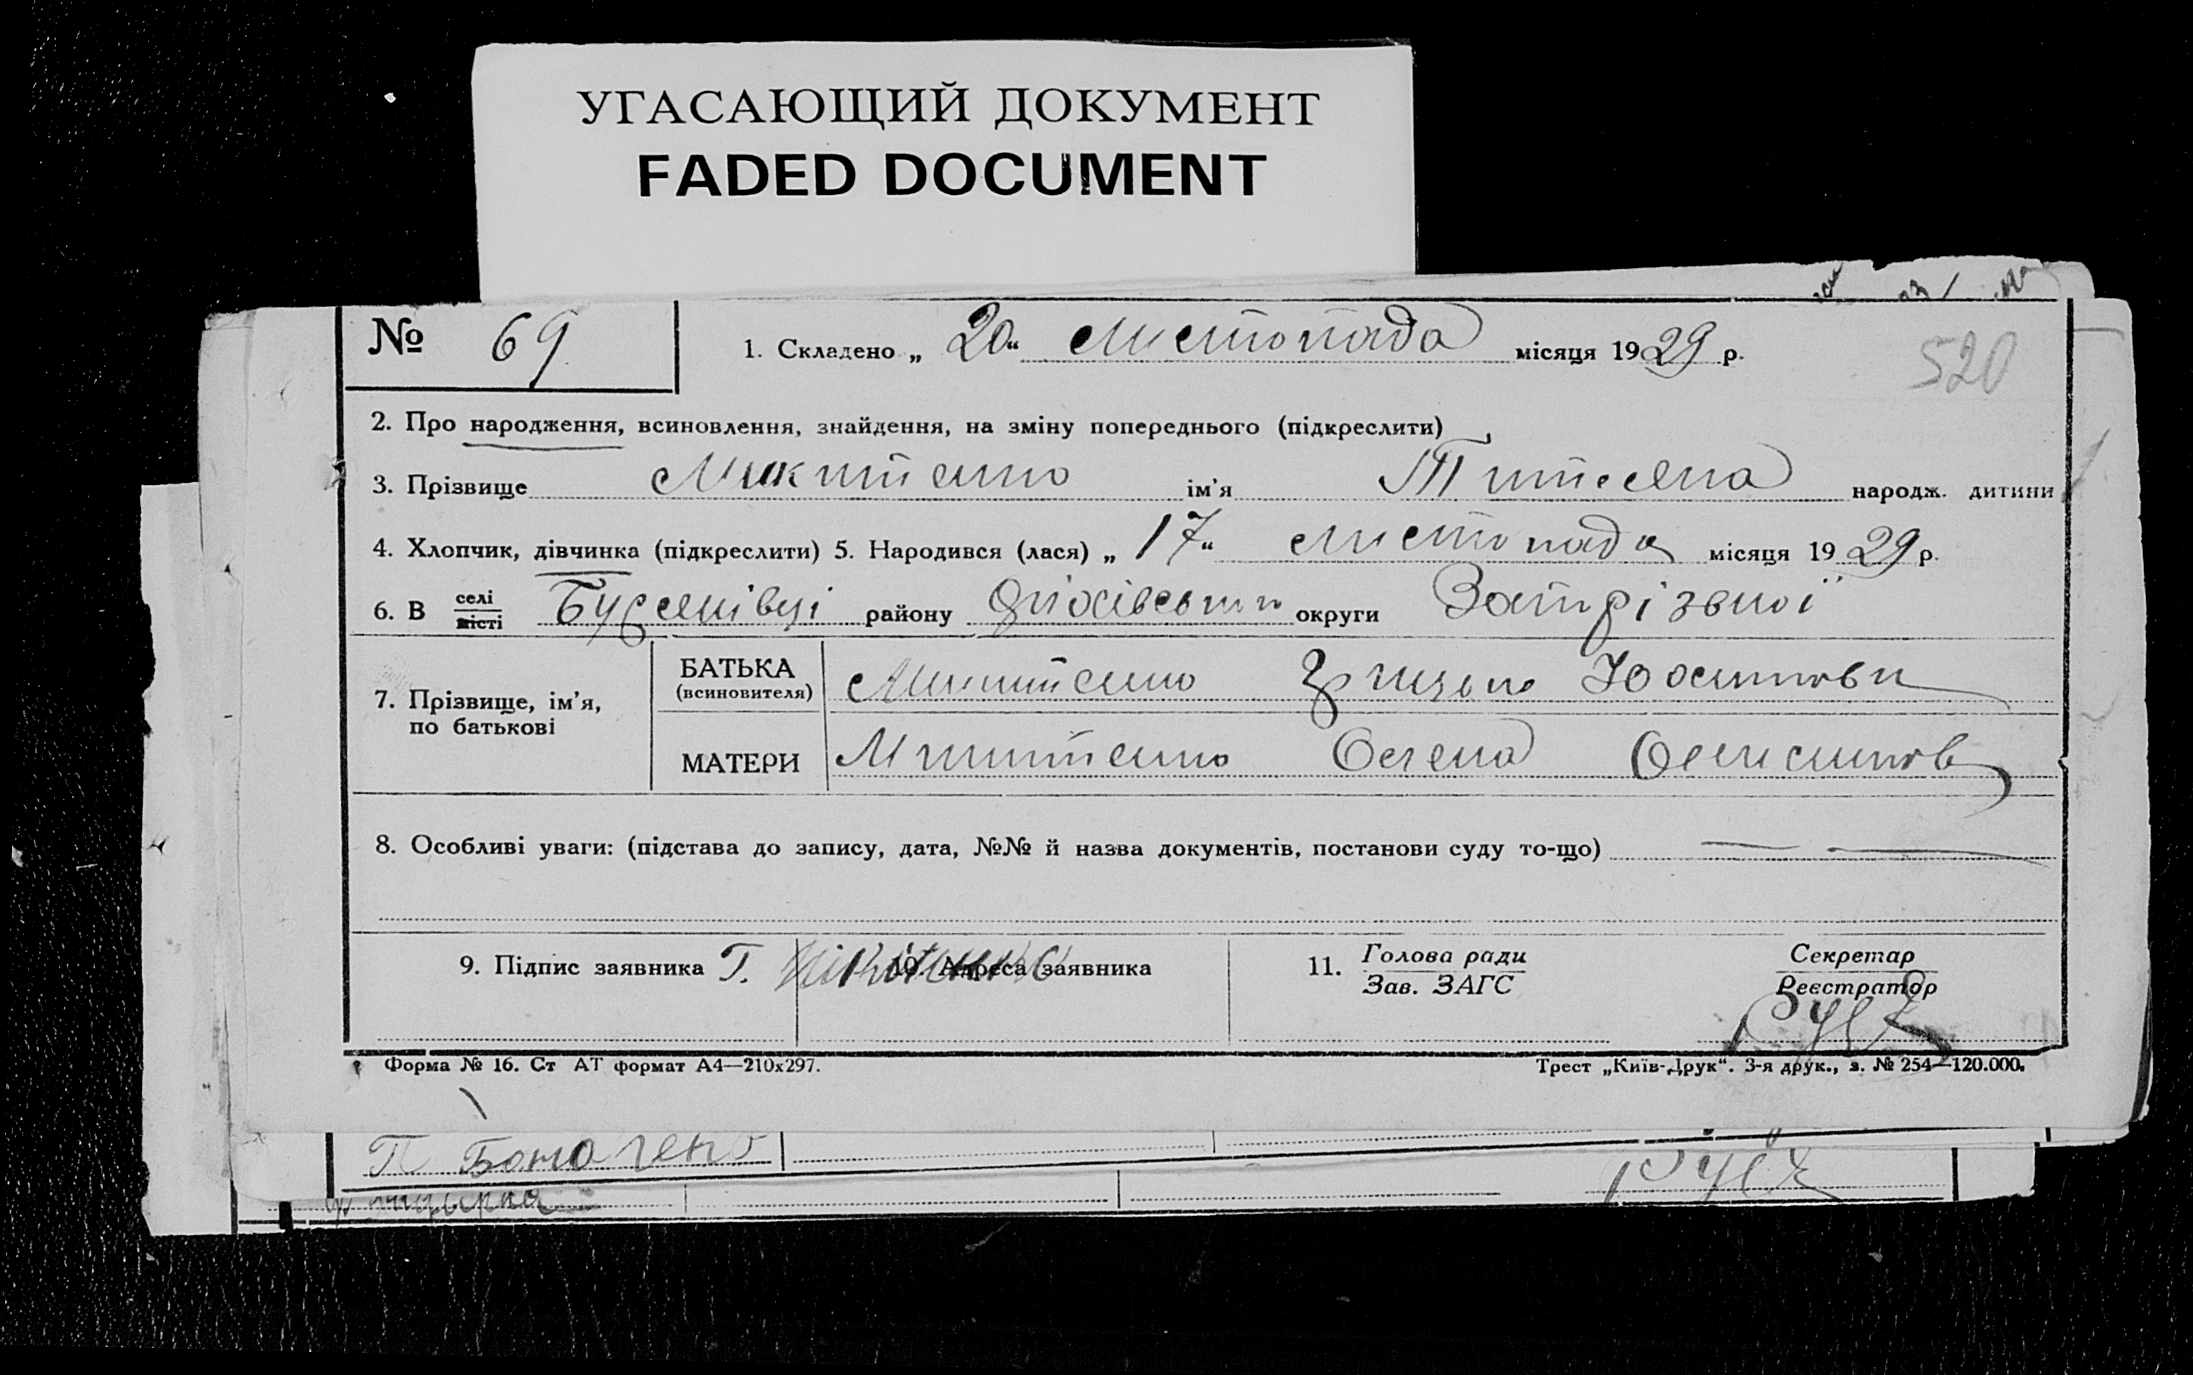 УГАСАЮЩИЙ ДОКУМЕНТ
FADED DOCUMENT
№ 69
1. Складено „ 20 “ листопада місяця 1929 р.
520
2. Про народження, всиновлення, знайдення, на зміну попереднього (підкреслити)
3. Прізвище Микитенко ім'я народж. дитини
4. Хлопчик, дівчинка (підкреслити) 5. Народився (лася) „ 17 “ листопада місяця 1929 р.
6. В селі
місті
району округи
7. Прізвище, ім'я,
по батькові
БАТЬКА
(всиновителя)
Микитенко Грицько Йосипови
МАТЕРИ
Микитенко Олена
8. Особливі уваги: (підстава до запису, дата, №№ й назва документів, постанови суду то-що)
9. Підпис заявника Г.
10. Адреса заявника
11. Голова ради
Зав. ЗАГС
Секретар
Реєстратор
Форма № 16. Ст АТ формат А4—210х297.
Трест „Київ-Друк“. 3-я друк., з. № 254—120.000.